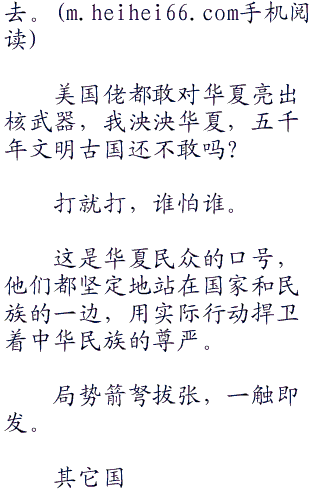 去。(m.heihei66.com手机阅
读)
美国佬都敢对华夏亮出
核武器，我泱泱华夏，五千
年文明古国还不敢吗？
打就打，谁怕谁。
这是华夏民众的口号，
他们都坚定地站在国家和民
族的一边，用实际行动捍卫
着中华民族的尊严。
局势箭弩拔张，一触即
发。
其它国